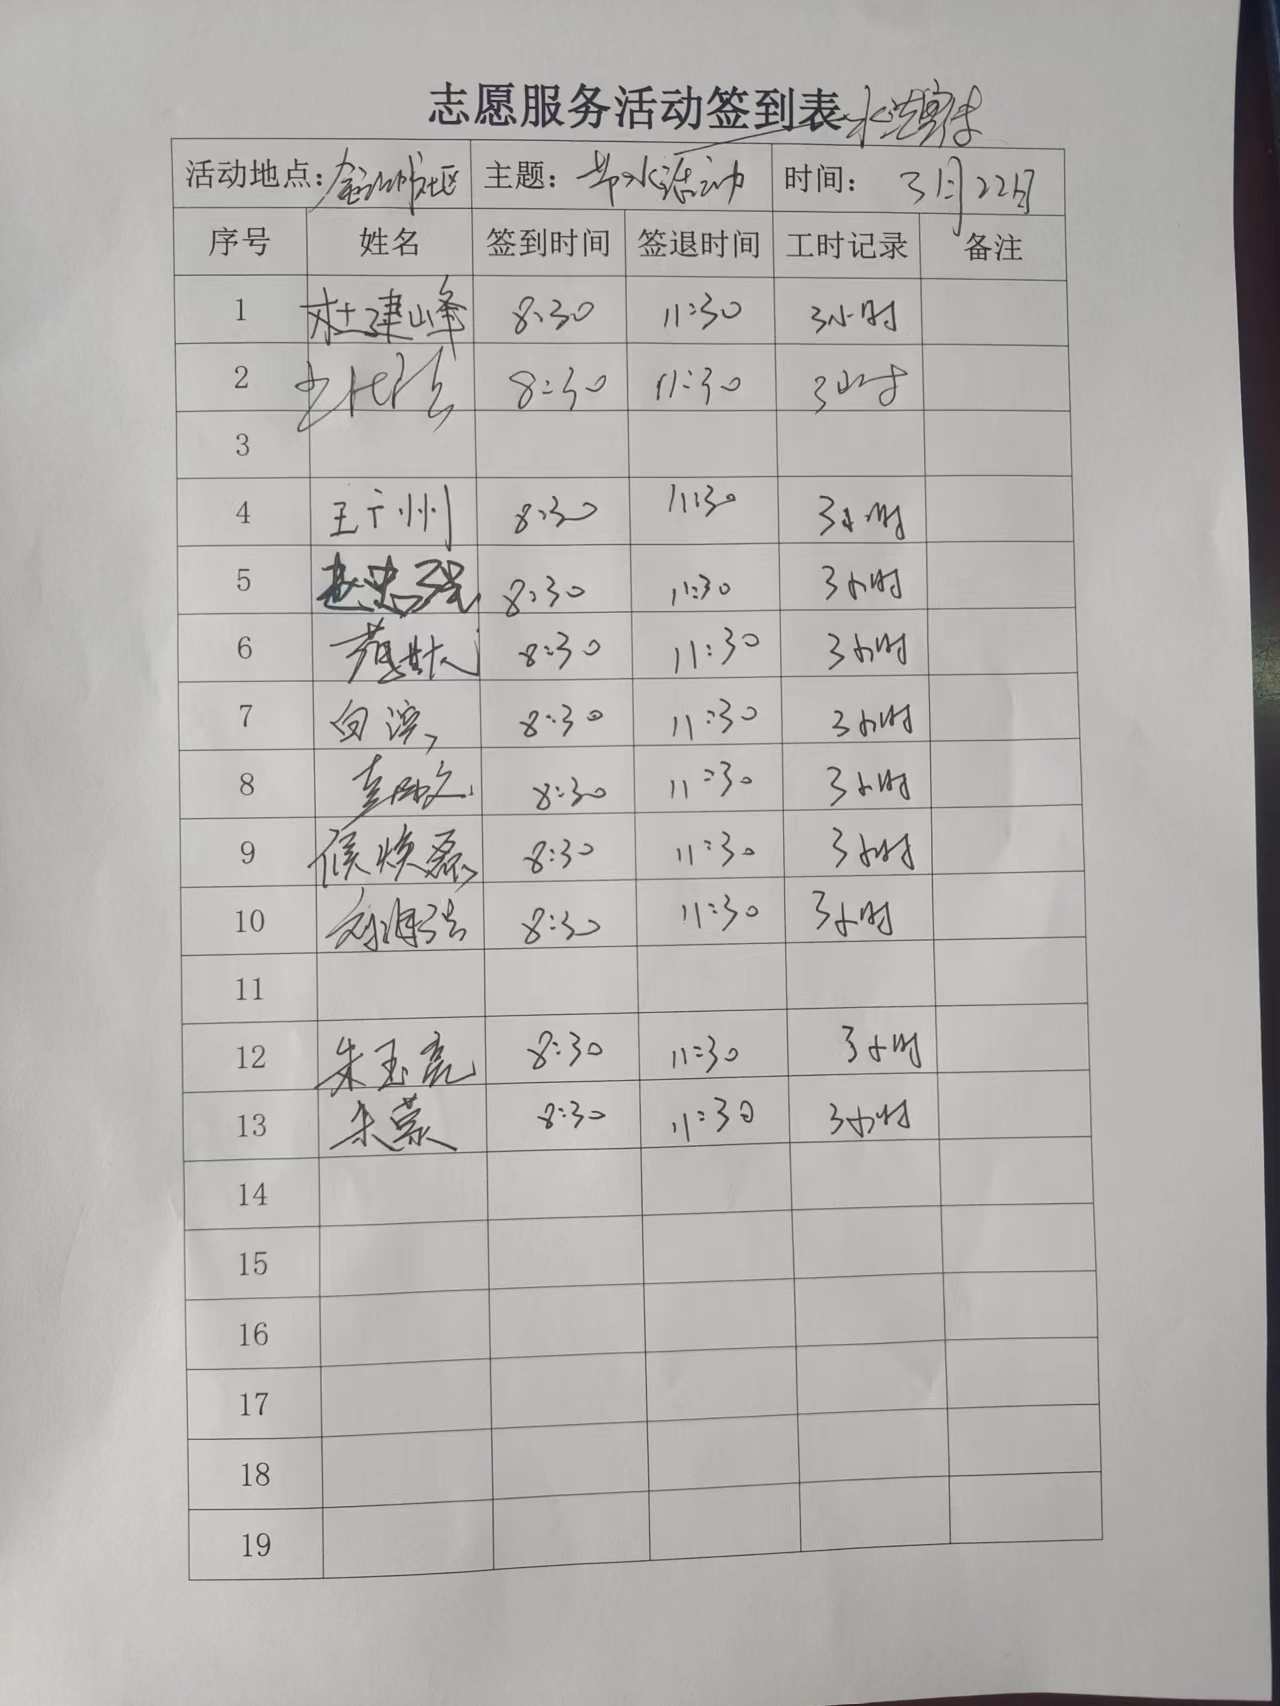 志愿服务活动签到表 水法宣传
活动地点: 社区 主题: 节水活动 时间: 3月22日
序号 姓名 签到时间 签退时间 工时记录 备注
1 杜建峰 8:30 11:30 3小时
2 8:30 11:30 3小时
3
4 王广州 8:30 11:30 3小时
5 赵忠强 8:30 11:30 3小时
6 8:30 11:30 3小时
7 白滨 8:30 11:30 3小时
8 8:30 11:30 3小时
9 侯焕磊 8:30 11:30 3小时
10 8:30 11:30 3小时
11
12 朱玉亮 8:30 11:30 3小时
13 朱蒙 8:30 11:30 3小时
14
15
16
17
18
19